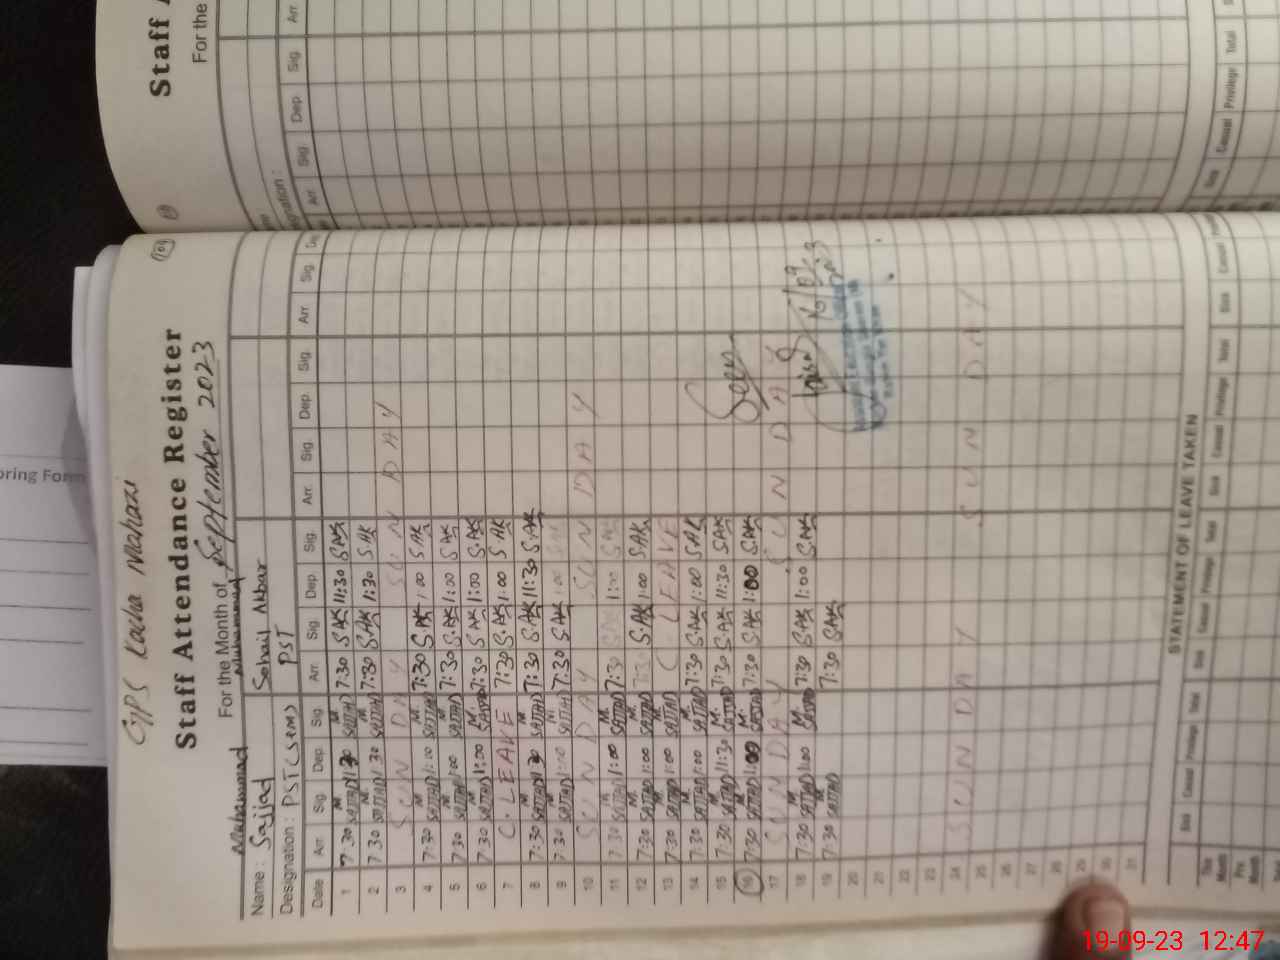 GPS Kacha Mahazi
Staff Attendance Register
For the Month of September 2023
Name : Muhammad Sajjad Muhammad Sohail Akbar
Designation : PST (SEMS) PST
Date Arr. Sig. Dep. Sig. Arr. Sig. Dep. Sig. Arr. Sig. Dep. Sig. Arr. Sig.
1 7:30 M. SAJJAD 11:30 M. SAJJAD 7:30 SAK 11:30 SAK
2 7:30 M. SAJJAD 1:30 M. SAJJAD 7:30 SAK 1:30 SAK
3 SUNDAY SUNDAY
4 7:30 M. SAJJAD 1:00 M. SAJJAD 7:30 SAK 1:00 SAK
5 7:30 M. SAJJAD 1:00 M. SAJJAD 7:30 SAK 1:00 SAK
6 7:30 M. SAJJAD 1:00 M. SAJJAD 7:30 SAK 1:00 SAK
7 C. LEAVE 7:30 SAK 1:00 SAK
8 7:30 M. SAJJAD 11:30 M. SAJJAD 7:30 SAK 11:30 SAK
9 7:30 M. SAJJAD 1:00 M. SAJJAD 7:30 SAK 1:00 SAK
10 SUNDAY SUNDAY
11 7:30 M. SAJJAD 1:00 M. SAJJAD 7:30 SAK 1:00 SAK
12 7:30 M. SAJJAD 1:00 M. SAJJAD 7:30 SAK 1:00 SAK
13 7:30 M. SAJJAD 1:00 M. SAJJAD C. LEAVE
14 7:30 M. SAJJAD 1:00 M. SAJJAD 7:30 SAK 1:00 SAK
15 7:30 M. SAJJAD 11:30 M. SAJJAD 7:30 SAK 11:30 SAK
16 7:30 M. SAJJAD 1:00 M. SAJJAD 7:30 SAK 1:00 SAK Seen
17 SUNDAY SUNDAY
18 7:30 M. SAJJAD 1:00 M. SAJJAD 7:30 SAK 1:00 SAK
19 7:30 M. SAJJAD 7:30 SAK
20
21
22
23
24 SUNDAY SUNDAY
25
26
27
28
29
30
31
STATEMENT OF LEAVE TAKEN
Sick Casual Privilege Total Sick Casual Privilege Total Sick Casual Privilege Total Sick Casual
This Month
Prv. Month
Staff
For the
Arr. Sig. Dep. Sig. Arr.
Sick Casual Privilege Total
oring Form
19-09-23 12:47